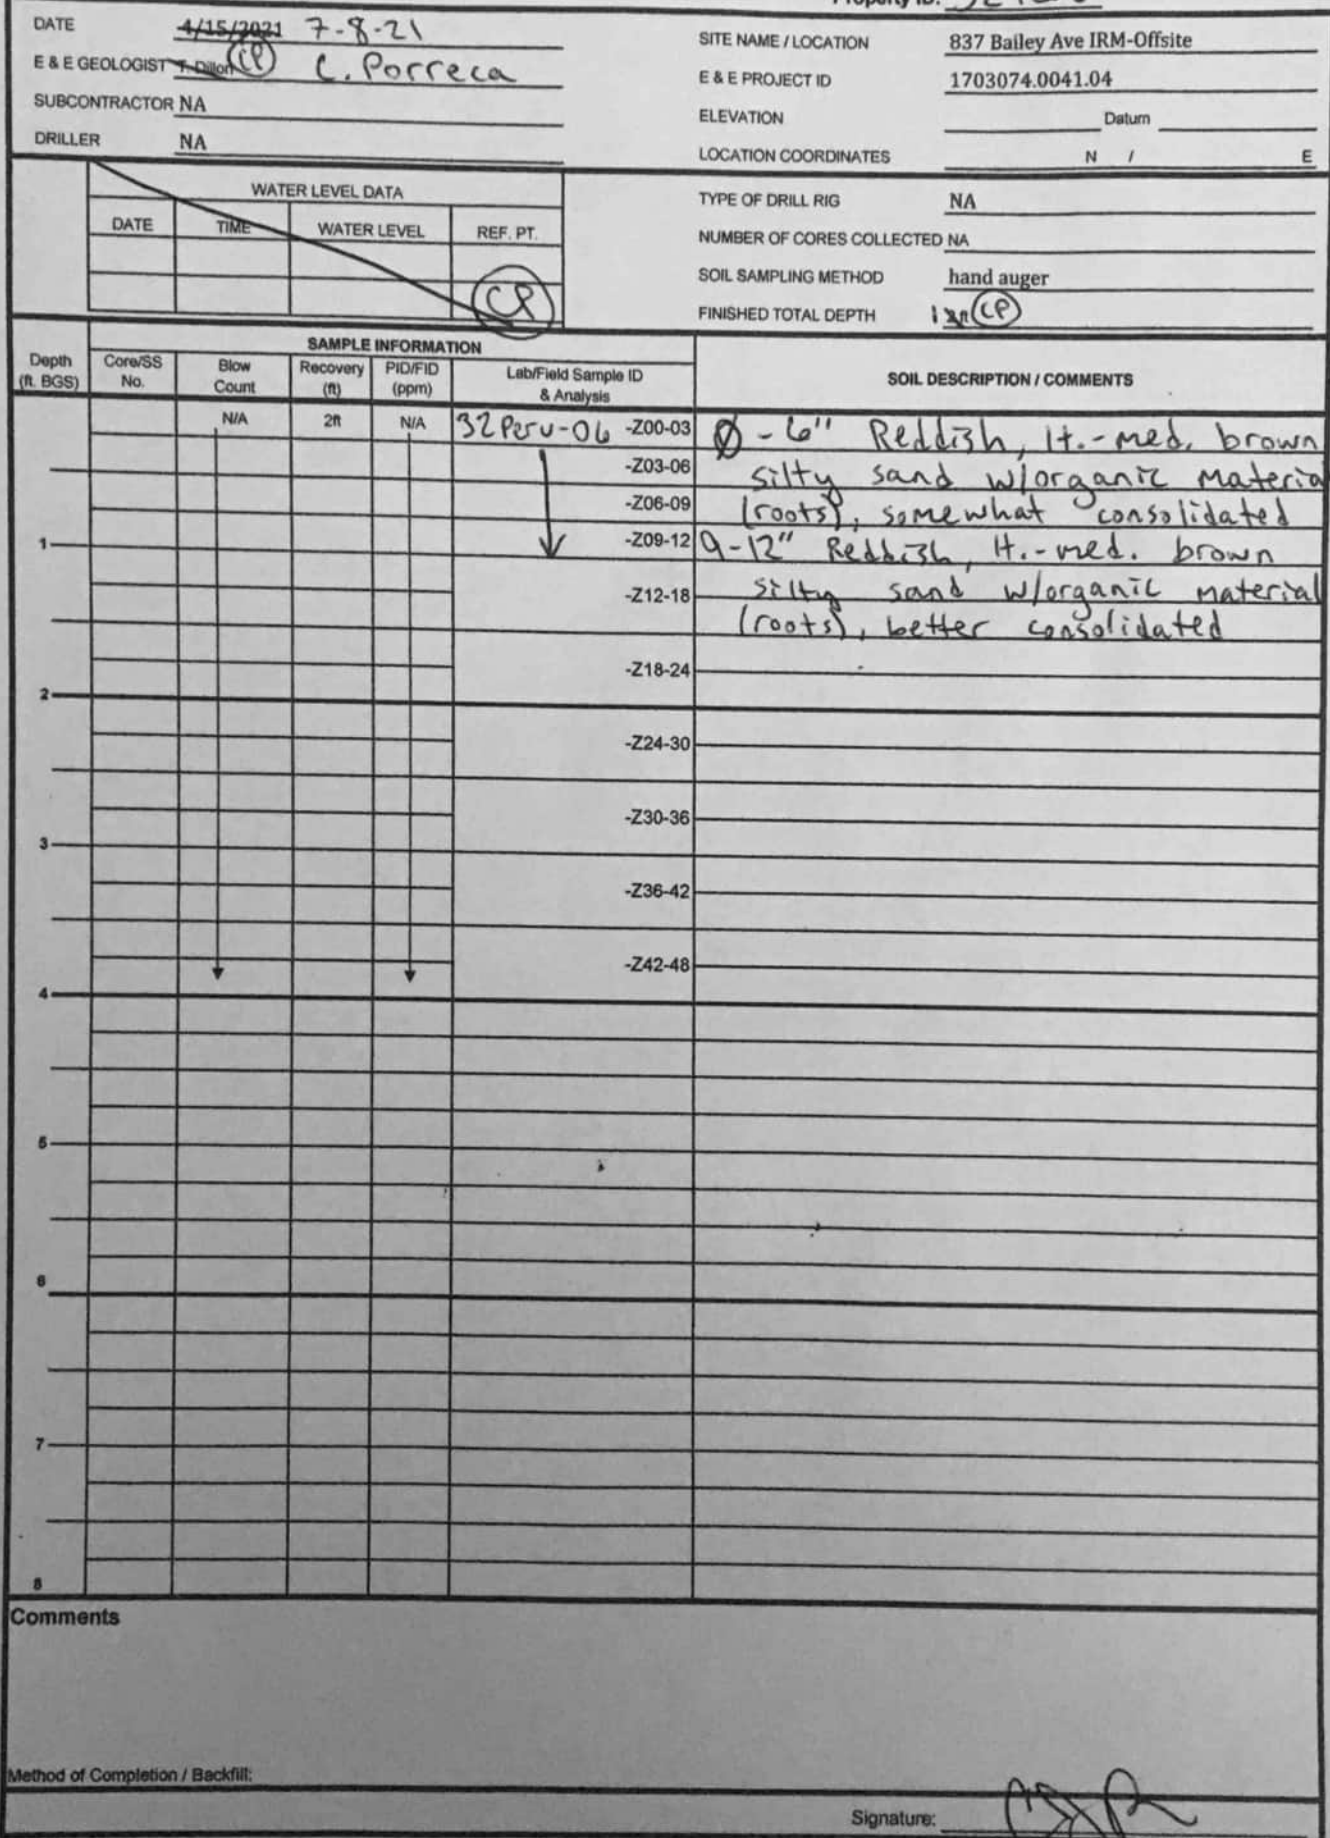 Property ID:
DATE 4/15/2021 7-8-21
SITE NAME / LOCATION 837 Bailey Ave IRM-Offsite
E & E GEOLOGIST T. Dillon CP C. Porreca
E & E PROJECT ID 1703074.0041.04
SUBCONTRACTOR NA
ELEVATION Datum
DRILLER NA
LOCATION COORDINATES N / E
WATER LEVEL DATA
DATE TIME WATER LEVEL REF. PT.
CP
TYPE OF DRILL RIG NA
NUMBER OF CORES COLLECTED NA
SOIL SAMPLING METHOD hand auger
FINISHED TOTAL DEPTH 1 CP
SAMPLE INFORMATION
Depth (ft. BGS)
Core/SS No.
Blow Count
Recovery (ft)
PID/FID (ppm)
Lab/Field Sample ID & Analysis
SOIL DESCRIPTION / COMMENTS
N/A 2ft N/A 32Peru-06 -Z00-03 Ø-6" Reddish, lt.-med. brown
-Z03-06 silty sand w/organic materia
-Z06-09 (roots), somewhat consolidated
1 -Z09-12 9-12" Reddish, lt.-med. brown
-Z12-18 silty sand w/organic material
(roots), better consolidated
-Z18-24
2
-Z24-30
-Z30-36
3
-Z36-42
-Z42-48
4
5
6
7
8
Comments
Method of Completion / Backfill:
Signature: